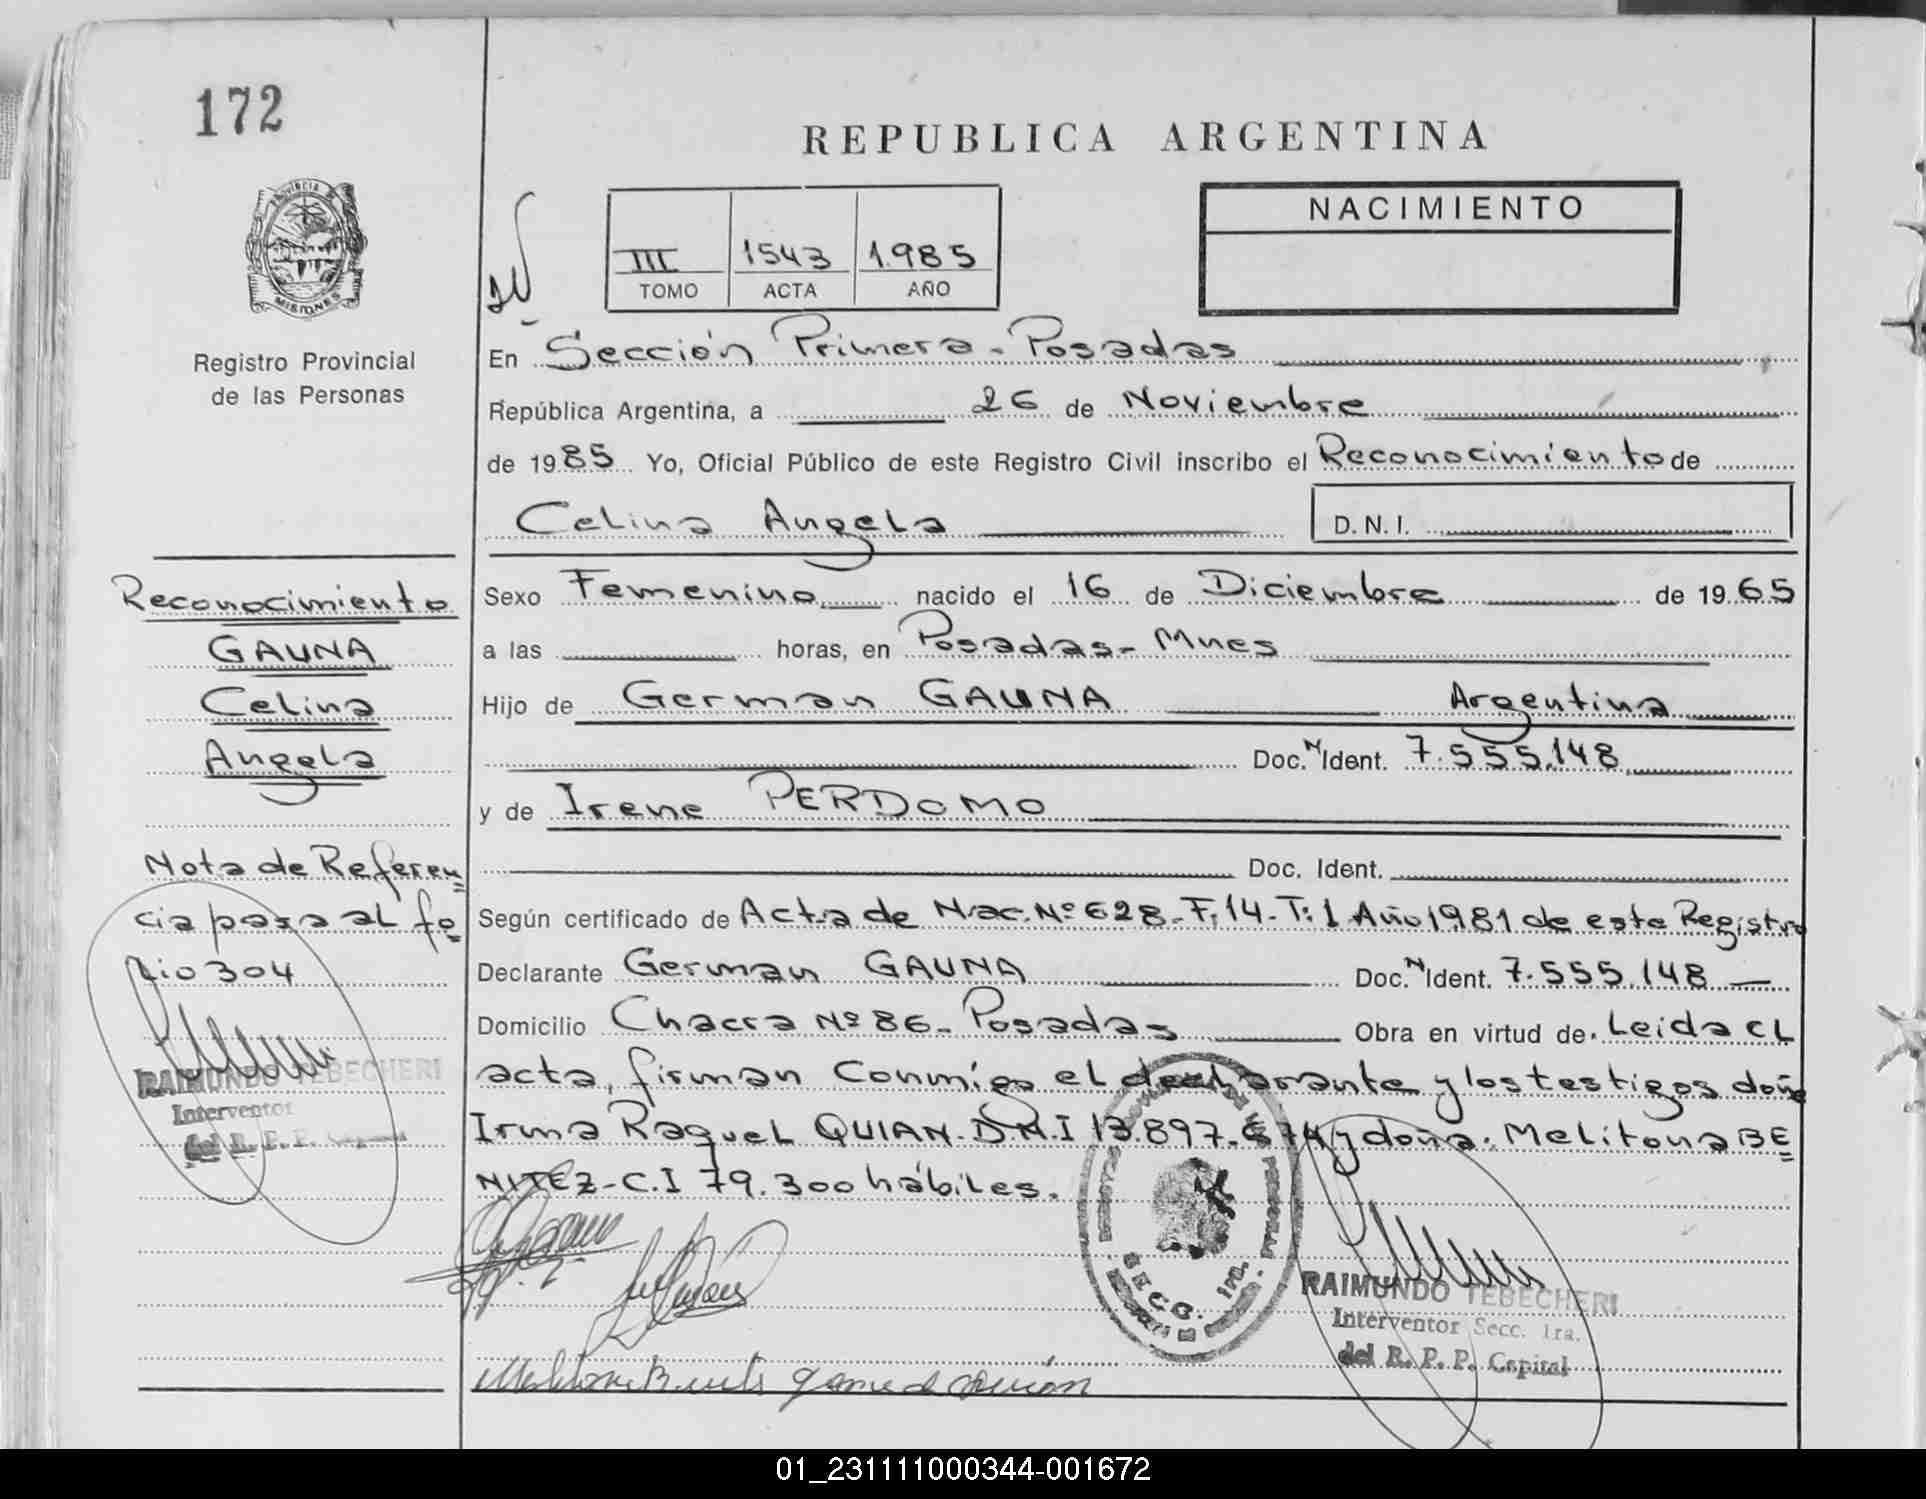 172
REPUBLICA ARGENTINA
PROVINCIA DE
MISIONES
Registro Provincial
de las Personas
III 1543 1.985
TOMO ACTA AÑO
NACIMIENTO
En Sección Primera - Posadas
República Argentina, a 26 de Noviembre
de 1985 Yo, Oficial Público de este Registro Civil inscribo el Reconocimiento de
Celina Angela D.N.I.
Reconocimiento
GAUNA
Celina
Angela
Sexo Femenino nacido el 16 de Diciembre de 1965
a las horas, en Posadas - Mnes
Hijo de German GAUNA Argentina
Doc. N Ident. 7.555.148
y de Irene PERDOMO
Doc. Ident.
Nota de Referen
cia pasa al fo
lio 304
RAIMUNDO TEBECHERI
Interventor
del R. P. P. Capital
Según certificado de Acta de Nac. Nº 628 - F: 14 - T: 1 Año 1981 de este Registro
Declarante German GAUNA Doc. N Ident. 7.555.148
Domicilio Chacra Nº 86 - Posadas Obra en virtud de. Leida el
acta, firman conmigo el declarante y los testigos doña
Irma Raquel QUIAN - D.N.I 13.897.674 y doña. Melitona BE
NITEZ - C.I 79.300 hábiles.
SECC. 1ra.
RAIMUNDO TEBECHERI
Interventor Secc. 1ra.
del R. P. P. Capital
01_231111000344-001672